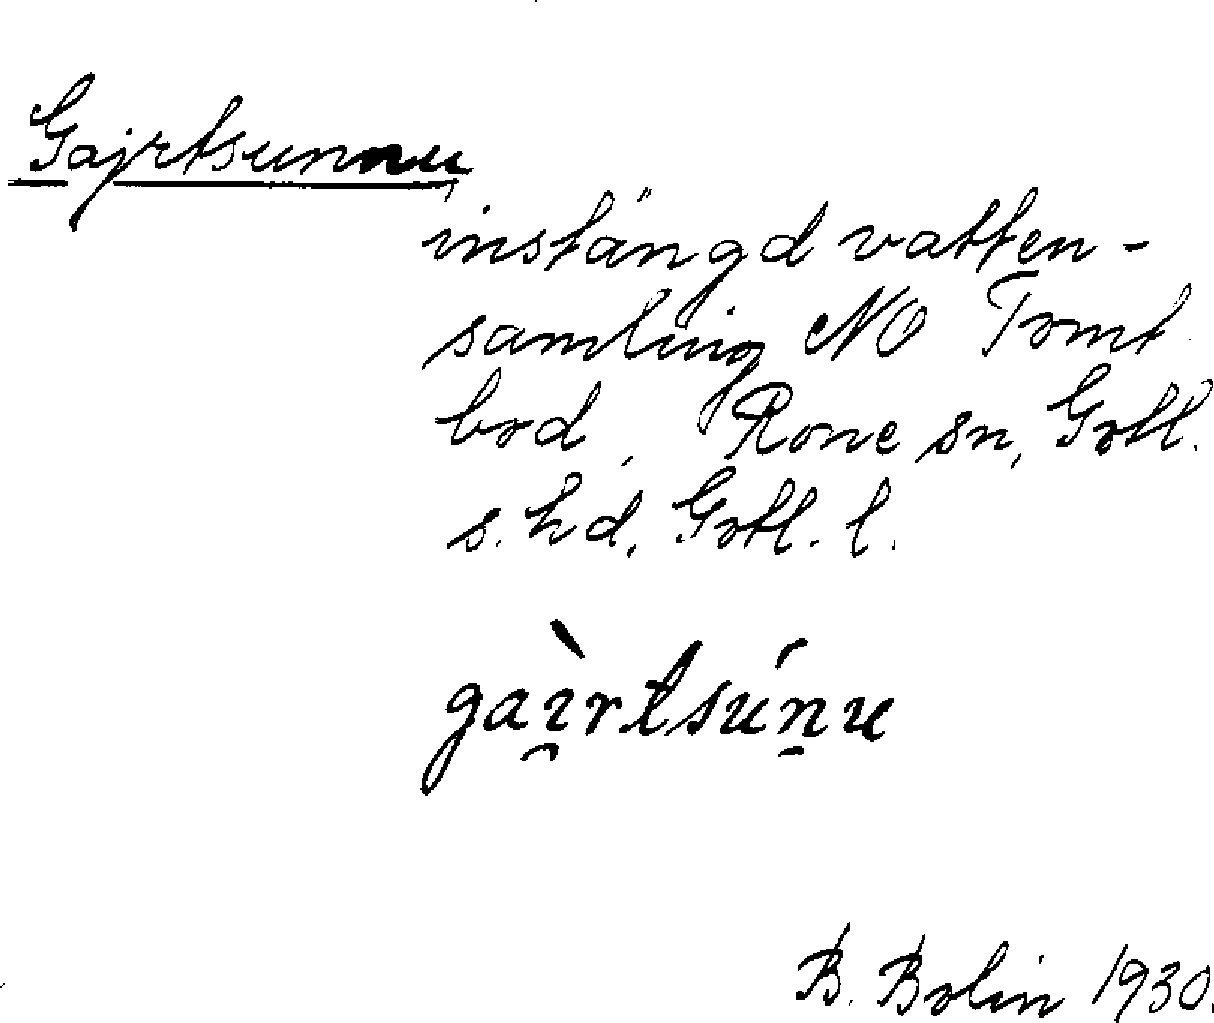 Gajrtsunnu
instängd vatten-
samling NO Tomt
bod, Rone sn, Gotl.
s. hd, Gotl. l.
gaì̯rtsún̠u
B. Bolin 1930.